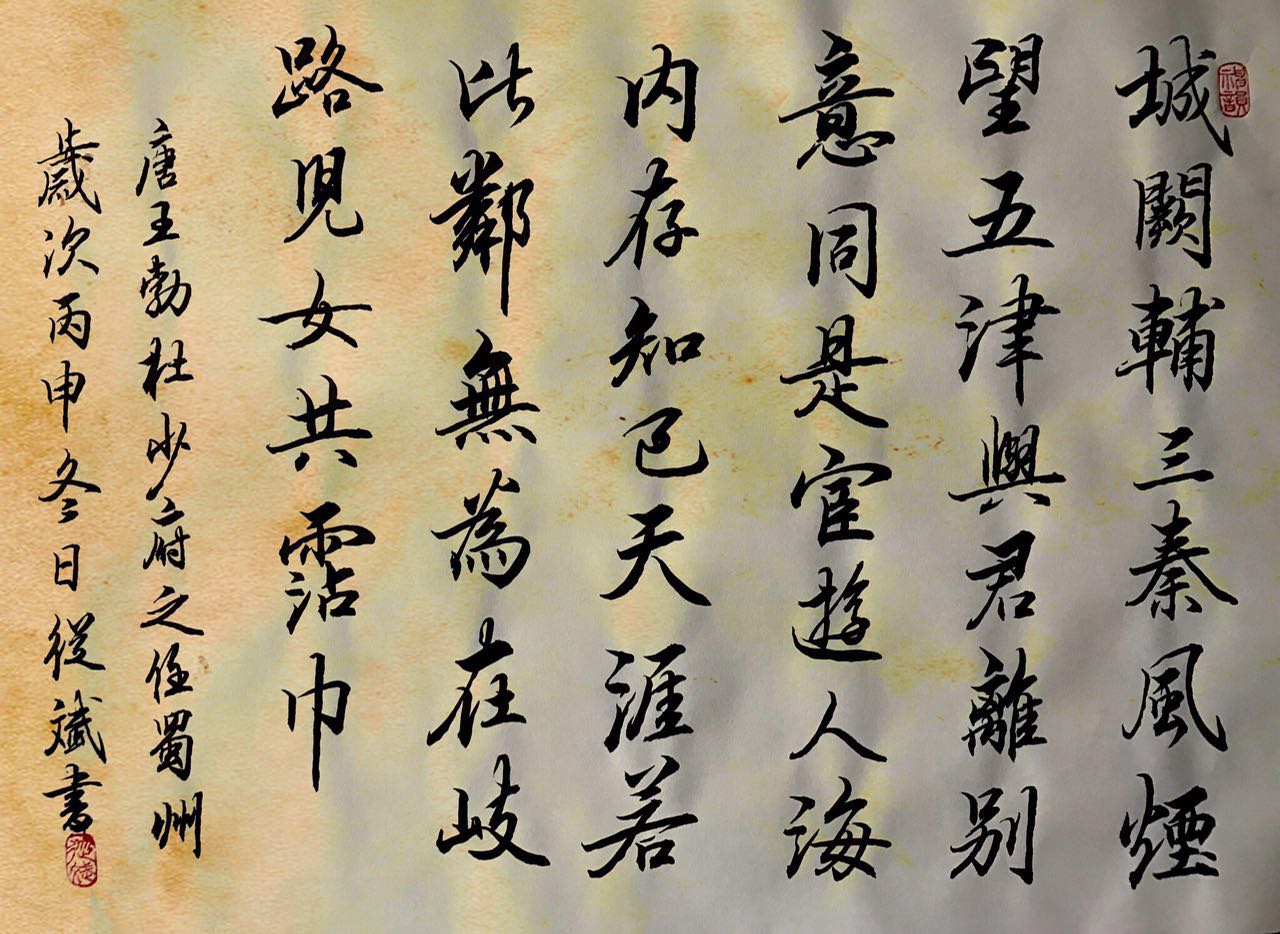 城闕輔三秦風煙
望五津與君離別
意同是宦遊人海
內存知己天涯若
比鄰無為在歧
路兒女共霑巾
唐王勃杜少府之任蜀州
歲次丙申冬日從斌書